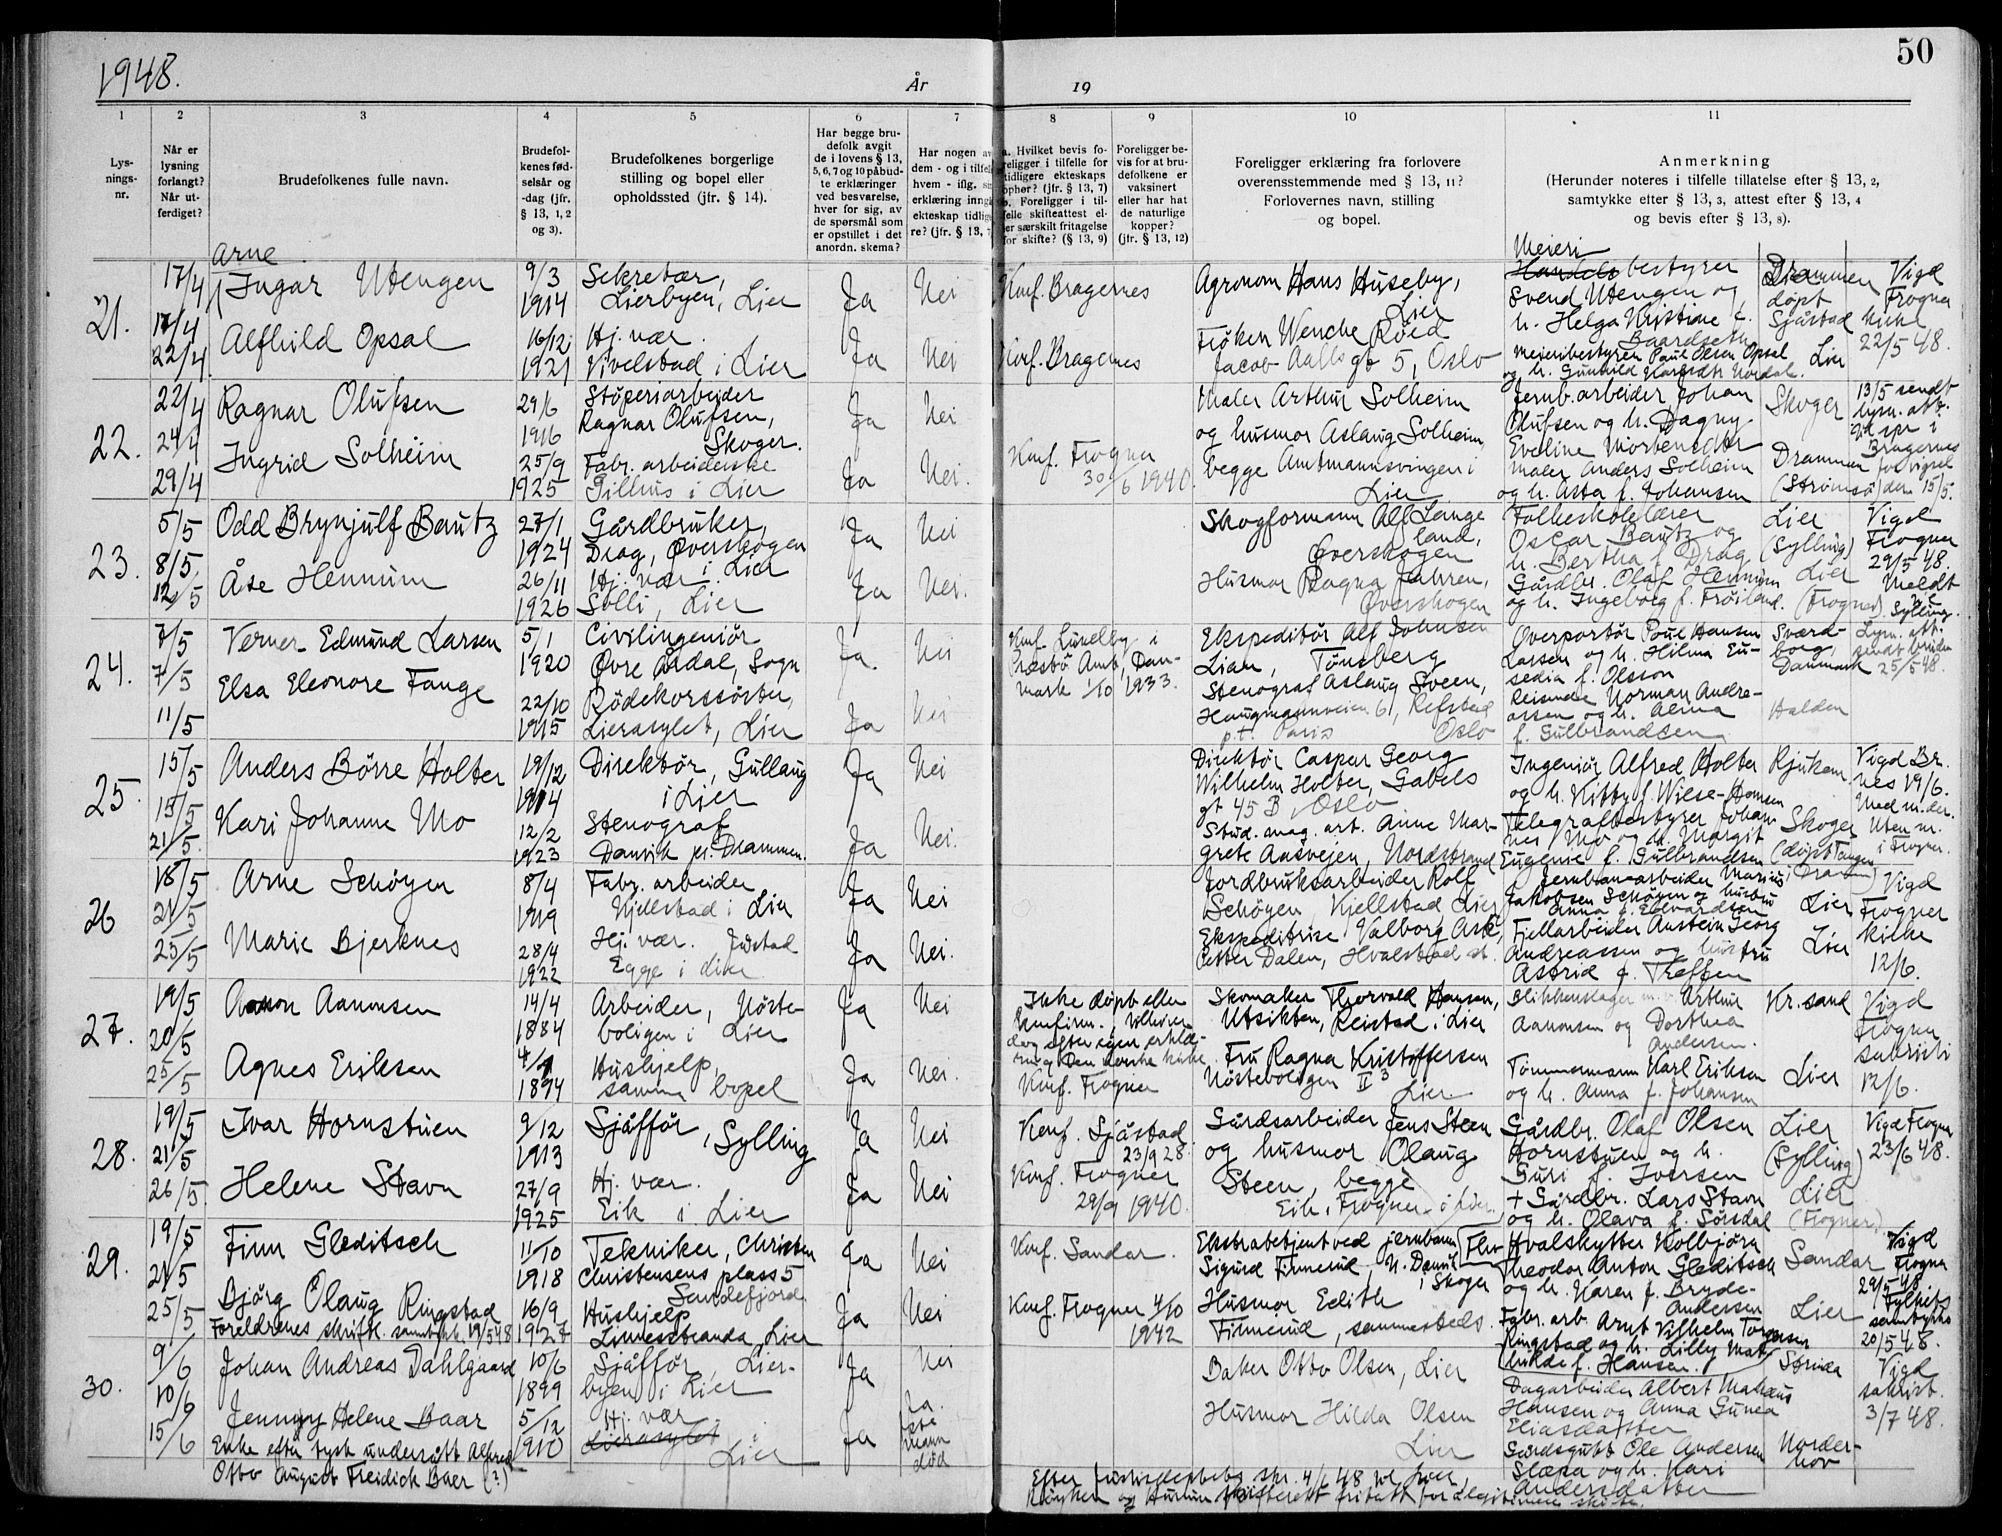 1948.
År
19
50
1
2
3
4
5
6
7
8
9
10
11
Lys-
nings-
nr.
Når er
lysning
forlangt?
Når ut-
ferdiget?
Brudefolkenes fulle navn.
Brudefol-
kenes fød-
selsår og
-dag (jfr.
§ 13, 1, 2
og 3).
Brudefolkenes borgerlige
stilling og bopel eller
opholdssted (jfr. § 14).
Har begge bru-
defolk avgit
de i lovens § 13,
5, 6, 7 og 10 påbud-
te erklæringer
ved besvarelse,
hver for sig, av
de spørsmål som
er opstillet i det
anordn. skema?
Har nogen av
dem - og i tilfelle
hvem - iflg.
erklæring inngå
ekteskap tidlige
re? (jfr. § 13, 7
a. Hvilket bevis fo-
religger i tilfelle for
tidligere ekteskaps
ophør? (jfr. § 13, 7)
b. Foreligger i til-
felle skifteattest el-
er særskilt fritagelse
for skifte? (§ 13, 9)
Foreligger be-
vis for at bru-
defolkene er
vaksinert
eller har hat
de naturlige
kopper?
(jfr. § 13, 12)
Foreligger erklæring fra forlovere
overensstemmende med § 13, 11?
Forlovernes navn, stilling
og bopel.
Anmerkning
(Herunder noteres i tilfelle tillatelse efter § 13, 2,
samtykke efter § 13, 3, attest efter § 13, 4
og bevis efter § 13, 8).
21.
17/4
17/4
22/4
Arne
Ingar Utengen
Alfhild Opsal
9/3
1914
16/12
1921
Sekretær,
Lierbyen, Lier
Hj. vær.
Vivelstad i Lier
Ja
Ja
Nei
Nei
Konf. Bragernes
Konf. Bragernes
Agronom Hans Huseby,
Lier
Frøken Wenche Røed
Jacob Aalls gt 5, Oslo
Meieri
Handelsbestyrer
Svend Utengen og
h. Helga Kristine f.
Baardseth
Meieribestyrer Paul Olsen Opsal
Drammen
døpt
Sjåstad
Lier
Vigd
Frogner
kirke
22/5 48.
22.
22/4
24/4
29/4
Ragnar Olufsen
Ingrid Solheim
29/6
1916
25/9
1925
Støperiarbeider
Ragnar Olufsen,
Skoger.
Fabr. arbeiderske
Gilhus i Lier
Ja
Ja
Nei
Nei.
Konf. Frogner
30/6 1940.
Maler Arthur Solheim
og husmor Aslaug Solheim
begge Amtmannsvingen i
Lier
Jernb. arbeider Johan
Olufsen og h. Dagny
Eveline Mortensdtr
Maler Anders Solheim
og h. Asta f. Johansen
Skoger
Drammen
(Strømsø)
13/5 sendt
lysn. att.
Bragernes
for vigsel
den 15/5.
23.
5/5
8/5
12/5
Odd Brynjulf Bautz
Åse Hennum
27/1
1924
26/11
1926
Gårdbruker,
Drag, Øverskogen
i Lier
Hj. vær
Solli, Lier
Ja
Ja
Nei
Nei.
Skogformann Alf Lange
land,
Øverskogen
Husmor Ragna Jahren,
Øverskogen
Folkeskolelærer
Oscar Bautz og
h. Bertha f. Drag
Gårdbr. Olaf Hennum
og h. Ingeborg f. Frøiland.
Lier
(Sylling)
Lier
(Frogner)
Vigd
Frogner
29/5 48.
Meldt
Sylling.
24.
7/5
7/5
11/5
Verner Edmund Larsen
Elsa Eleonore Tange
5/1
1920
22/10
1915
Civilingeniør
Øvre Årdal, Sogn
Rødekorssøster,
Lierasylet, Lier
Ja.
Ja
Nei
Nei
Konf. Lundby i
Præstø Amt, Dan-
mark 1/10 1933.
Ekspeditør Alf Johnsen
Lian, Tønsberg
Stenograf Aslaug Sveen,
Haugmannveien 61, Refstad
p.t. Paris Oslo
Overportør Poul Hansen
Larsen og h. Hilma Eu-
sedia f. Olsson
Reisende Norman Andre-
assen og h. Alma
f. Gulbrandsen
Sværd-
borg,
Danmark
Halden
Lysn. att.
sendt bruden
25/5 48.
25.
15/5
15/5
21/5.
Anders Børre Holter
Kari Johanne Mo
19/12
1914
12/2
1923
Direktør, Gullaug
i Lier
Stenograf
Danvik pr. Drammen.
Ja
Ja
Nei
Nei.
Direktør Casper Georg
Wilhelm Holter, Gabels
gt 45 B, Oslo
Stud. mag. art. Anne Mar-
grete Aasvejen, Nordstrand
Ingeniør Alfred Holter
og h. Kitty f. Wiese-Hansen
Telegrafbestyrer Johan-
nes Mo og h. Margit
Eugenie f. Gulbrandsen
Rjukan
Skoger
(døpt Tangen
Dramm)
Vigd Br.
nes 19/6.
Med m. der.
Uten m.
i Frogner.
26
18/5
21/5
25/5
Arne Schøyen
Marie Bjerknes
8/4
1919
28/9
1922
Fabr. arbeider
Kjellstad i Lier
Hj. vær. Justad
Egge i Lier
Ja
Ja
Nei
Nei.
Jordbruksarbeider Rolf
Schøyen, Kjellstad Lier
Ekspeditrise Valborg Ask,
Petter Dalen, Hvalstad st.
Jernbanearbeider Marius
Jakobsen Schøyen og hustru
Anna f. Edvardsen
Fjellarbeider Anstein Georg
Andreassen og hustru
Astrid f. Treffen
Lier
Lier
Vigd
Frogner
kirke
12/6.
27.
19/5
20/5
25/5
Aanon Aanonsen
Agnes Eriksen
14/4
1884
1894
Arbeider, Nøste-
boligen i Lier
Hushjelp,
samme bopel
Ja
Ja
Nei
Nei.
Ikke døpt eller
konfirm.,
dog efter egen erklæ-
ring Den norske kirke
Konf. Frogner
Skomaker Thorvald Hansen,
Utsikten, Reistad i Lier
Fru Ragna Kristoffersen
Nøsteboligen II 3
Lier
Blikkenslager m.v. Arthur
Aanonsen og Dorthea
Andersen.
Tømmermann Karl Eriksen
og h. Anna f. Johansen
Kr. sand
Lier
Vigd
Frogner
sakristi
12/6.
28.
19/5
21/5
26/5
Ivar Hornstuen
Helene Stavn
9/12
1913
27/9
1925
Sjåffør, Sylling
Hj. vær.
Eik i Lier
Ja
Ja
Nei
Nei
Konf. Sjåstad
23/9 28.
Konf. Frogner
29/9 1940.
Gårdsarbeider Jens Steen
og husmor Olaug
Steen, begge
Eik, Frogner i Lier
Gårdbr. Olaf Olsen
Hornstuen og h.
Guri f. Iversen
+ Gårdbr. Lars Stavn
og h. Olava f. Sørsdal
Lier
(Sylling)
Lier
(Frogner)
Vigd Frogner
23/6 48.
29.
19/5
21/5
25/5
Finn Gleditsch
Bjørg Olaug Ringstad
Foreldrenes skriftl. samtykke 19/5 48
11/10
1918
16/9
1927
Tekniker, Christen
Christensens plass 5
Sandefjord
Hushjelp
Linnesstranda, Lier
Ja
Ja
Nei
Nei
Konf. Sandar.
Konf. Frogner 4/10
1942
Ekstrabetjent ved jernbanen
Sigurd Finnerud, N. Danvik
i Skoger
Husmor Edith
Finnerud, sammesteds.
Hvalskytter Kolbjørn
Theodor Anton Gleditsch
og h. Karen f. Bryde-
Andersen
Fabr. arb. Arnt Vilhelm Torgersen
Ringstad og h. Lilly Mat-
hilde f. Hansen.
Sandar
Lier
Vigd
Frogner
29/5 48
Fylkets
samtykke
20/5 48.
30.
9/6
10/6
15/6
Johan Andreas Dahlgaard
Jenny Helene Baar
Enke efter tysk undersått Alfred
Otto August Freidick Baer (?)
10/6
1899
5/12
1910
Sjåffør, Lier-
byen i Lier
Hj. vær
Lierasylet
Lier
Ja
Ja
Nei
Ja.
1ste
mann
død
Baker Otto Olsen, Lier
Husmor Hilda Olsen
Lier
Dagarbeider Albert Matheus
Hansen og Anna Gunea
Eliasdatter
Gårdsgutt Ole Andersen
Slæpa og h. Kari
Andersdatter
Strinda
Norder-
hov
Vigd
sakrist.
3/7 48.